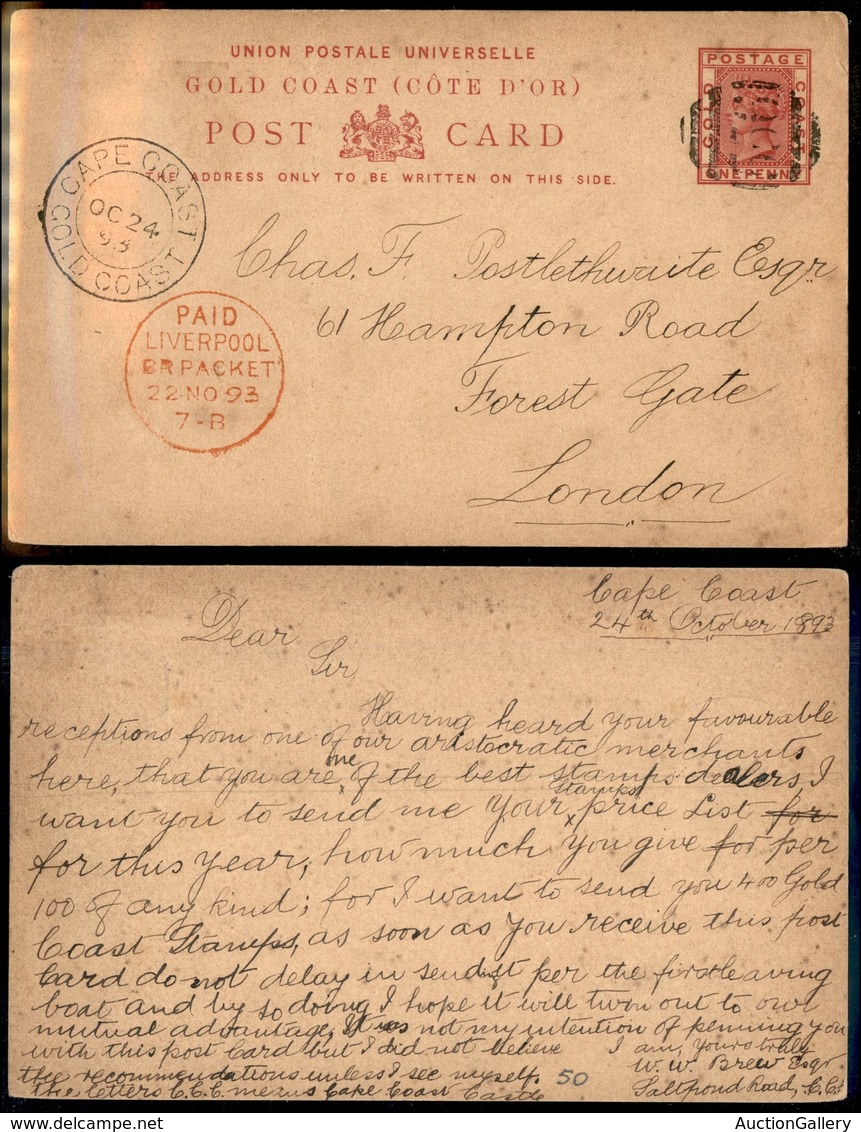 UNION POSTALE UNIVERSELLE
GOLD COAST (CÔTE D'OR)
POST CARD
THE ADDRESS ONLY TO BE WRITTEN ON THIS SIDE.
POSTAGE
GOLD COAST
ONE PENNY
CAPE COAST
OC 24
93
GOLD COAST
PAID
LIVERPOOL
BR PACKET
22 NO 93
7-B
Chas. F. Postlethwaite Esqr
61 Hampton Road
Forest Gate
London
Cape Coast
24th October 1893
Dear
Sir,
Having heard your favourable
receptions from one of our aristocratic merchants
here, that you are one of the best stamps dealers, I
want you to send me your Stamps price List for
for this year; how much you give for per
100 of any kind; for I want to send you 400 Gold
Coast Stamps, as soon as you receive this post
Card do not delay in send it per the first leaving
boat and by so doing I hope it will turn out to our
mutual advantage, It was not my intention of penning you
with this post Card but I did not believe
the recommendations unless I see myself.
the letters C.C.C. means Cape Coast Castle
I am, yours truly
W. W. Brew Esqr
Saltpond Road, C.C.
50
AuctionGallery
delcampe.net